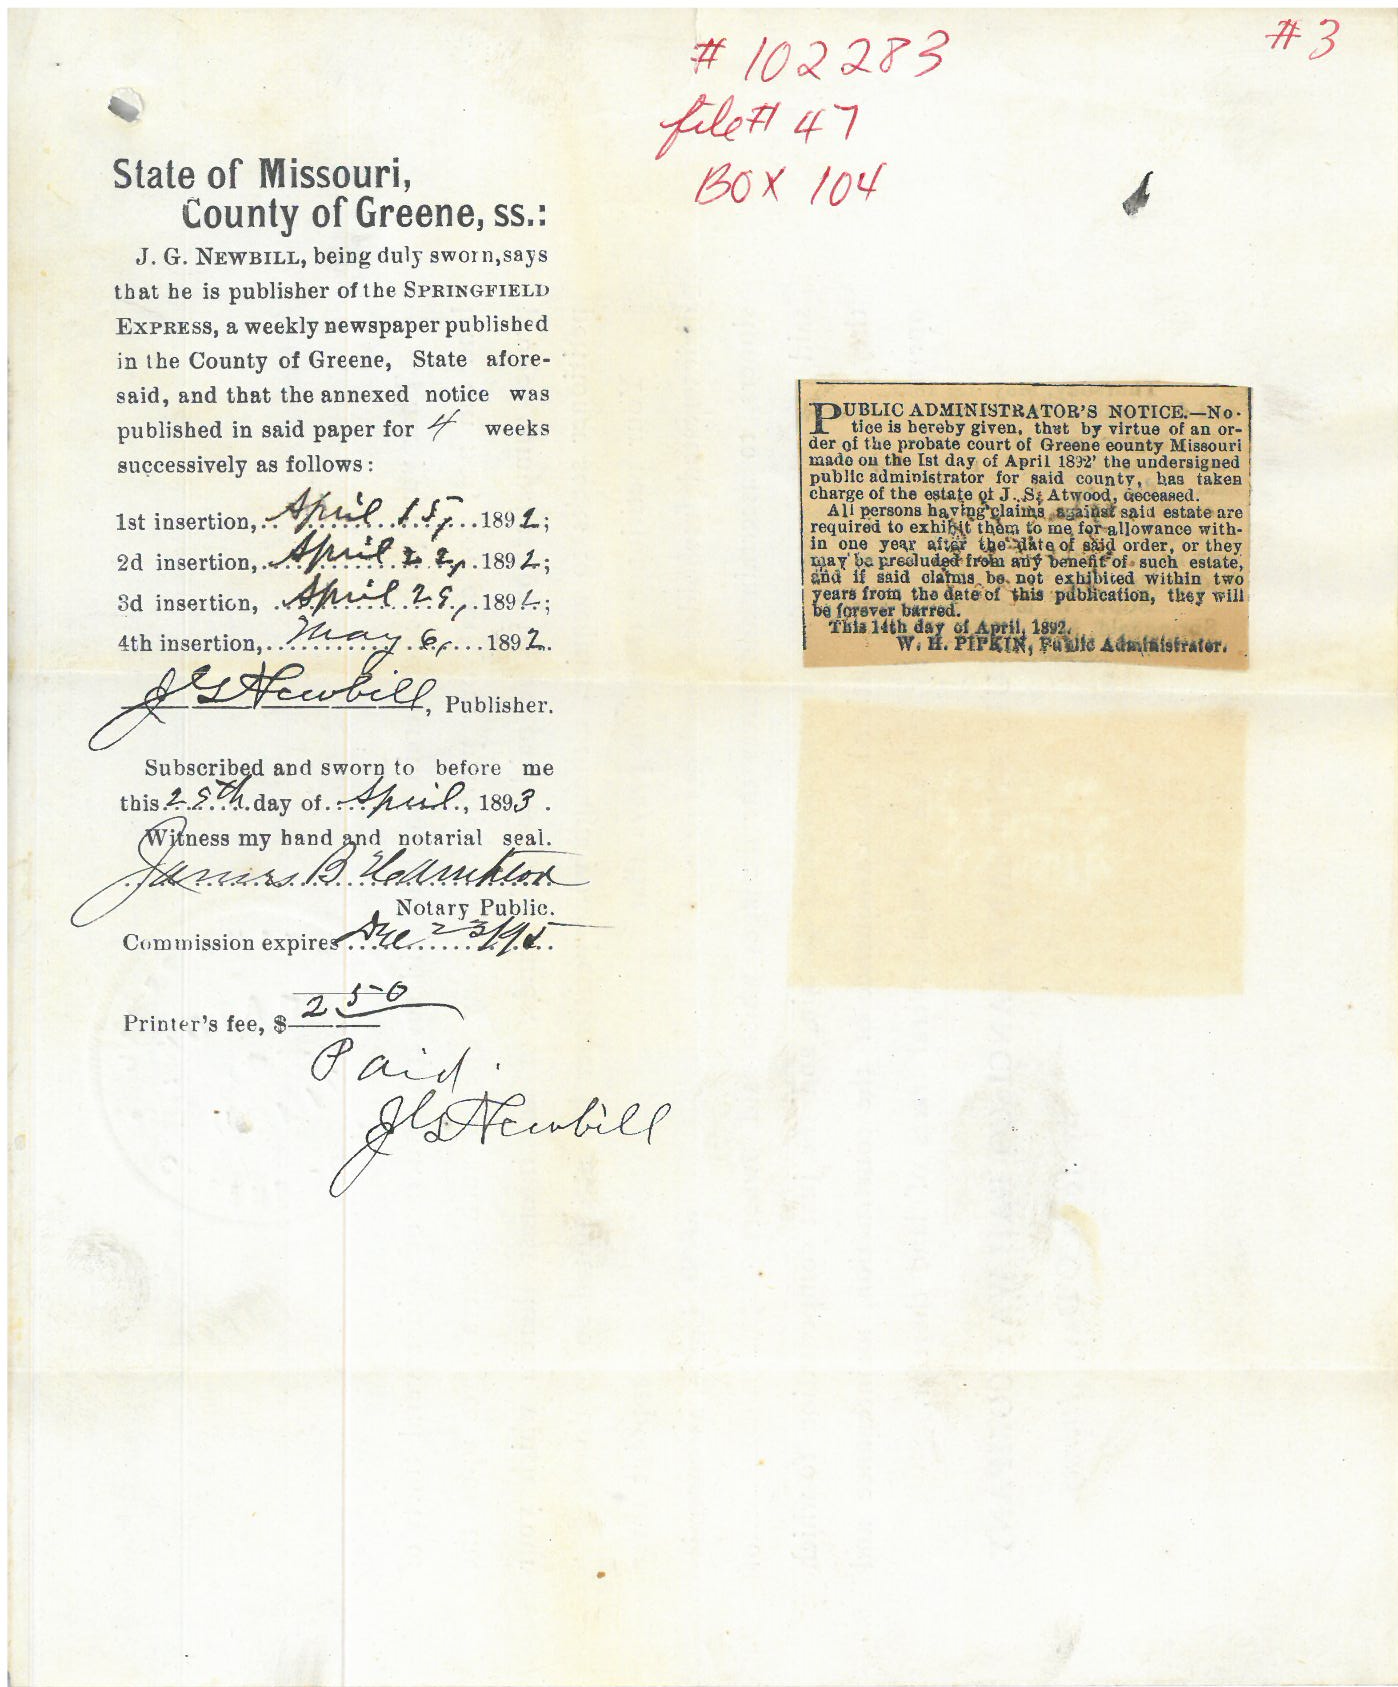 # 102283
# 3
file # 47
BOX 104
State of Missouri,
County of Greene, ss.:
J. G. NEWBILL, being duly sworn, says
that he is publisher of the SPRINGFIELD
EXPRESS, a weekly newspaper published
in the County of Greene, State afore-
said, and that the annexed notice was
published in said paper for 4 weeks
successively as follows:
1st insertion, April 15, 1892;
2d insertion, April 22, 1892;
3d insertion, April 29, 1892;
4th insertion, May 6, 1892.
J G Newbill, Publisher.
Subscribed and sworn to before me
this 25th day of April, 1893.
Witness my hand and notarial seal.
James B
Notary Public.
Commission expires Dec 23/95
Printer's fee, $ 2 50
Paid.
J G Newbill
PUBLIC ADMINISTRATOR'S NOTICE.—No-
tice is hereby given, that by virtue of an or-
der of the probate court of Greene county Missouri
made on the 1st day of April 1892' the undersigned
public administrator for said county, has taken
charge of the estate of J. S. Atwood, deceased.
All persons having claims against said estate are
required to exhibit them to me for allowance with-
in one year after the date of said order, or they
may be precluded from any benefit of such estate,
and if said claims be not exhibited within two
years from the date of this publication, they will
be forever barred.
This 14th day of April, 1892.
W. H. PIPKIN, Public Administrator.